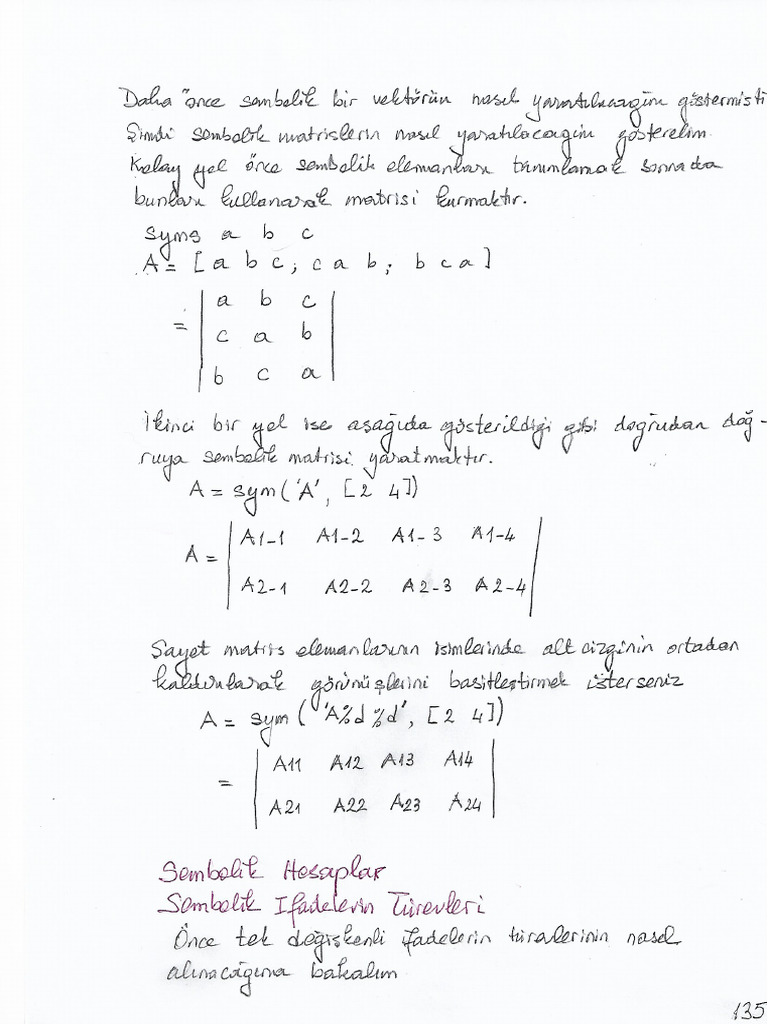 Daha önce sembolik bir vektörün nasıl yaratılacağını göstermisti
Şimdi sembolik matrislerin nasıl yaratılacağını gösterelim.
Kolay yol önce sembolik elemanları tanımlamak sonrada
bunları kullanarak matrisi kurmaktır.
syms a b c
A = [a b c; c a b; b c a]
a b c
= c a b
b c a
İkinci bir yol ise aşağıda gösterildiği gibi doğrudan doğ-
ruya sembolik matrisi yaratmaktır.
A = sym('A', [2 4])
A1-1 A1-2 A1-3 A1-4
A =
A2-1 A2-2 A2-3 A2-4
Sayet matris elemanlarının isimlerinde alt cizginin ortadan
kaldırılarak görünüşlerini basitleştirmek isterseniz
A = sym('A%d%d', [2 4])
A11 A12 A13 A14
=
A21 A22 A23 A24
Sembolik Hesaplar
Sembolik Ifadelerin Türevleri
Önce tek değişkenli ifadelerin türevlerinin nasıl
alınacağına bakalım
135